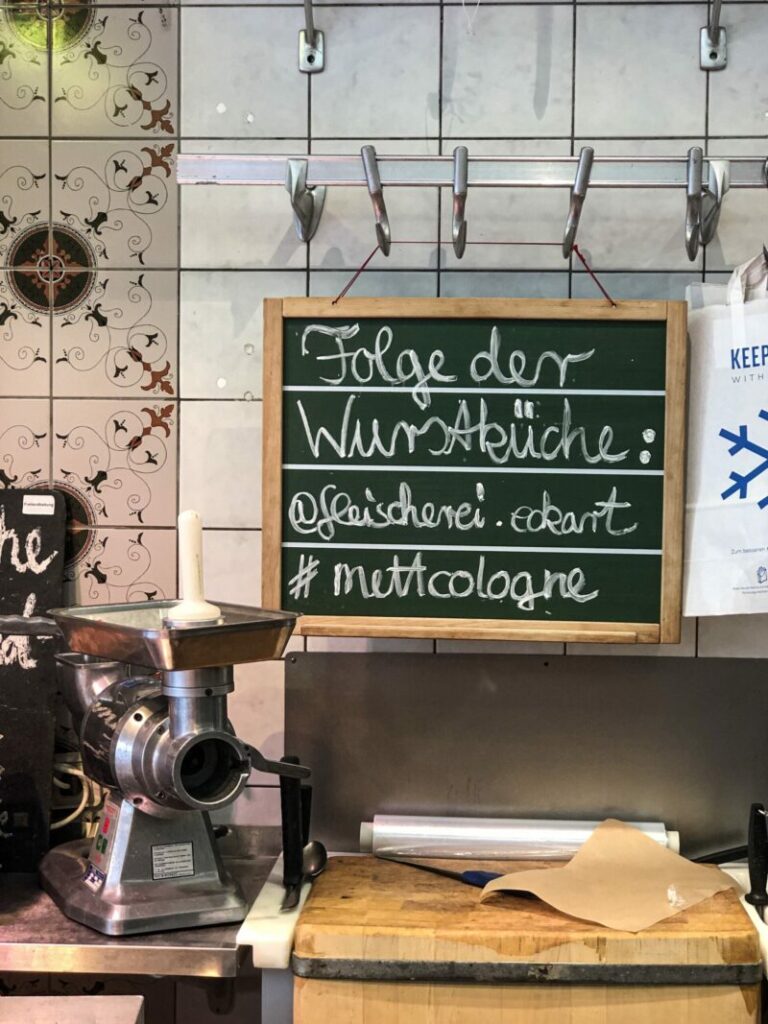 Folge der
Wurstküche:
@fleischerei.eckart
#mettcologne
KEEP
WITH
Zum besseren
he